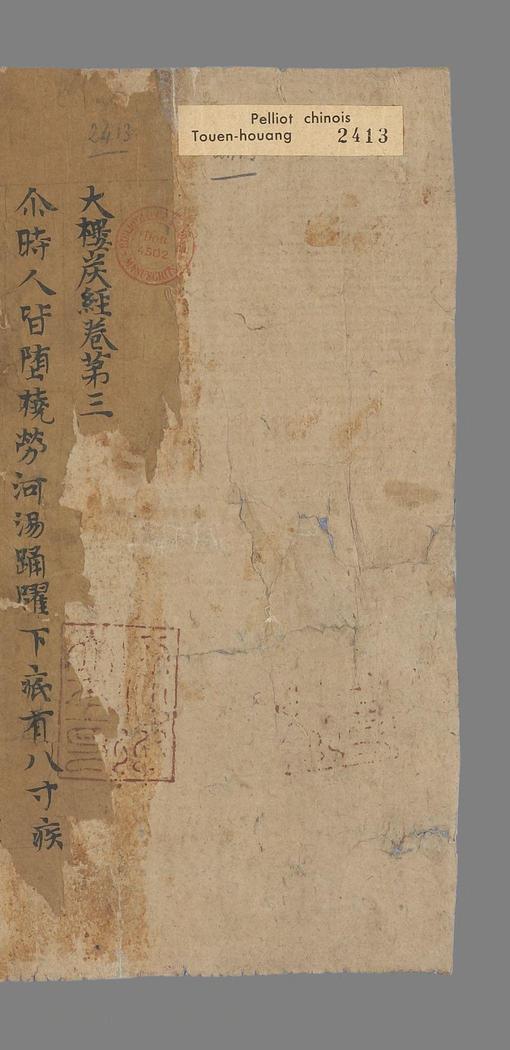 Pelliot chinois
Touen-houang 2413
2413
Don
4502
MANUSCRITS
大樓炭經卷第三
尒時人皆堕橈勞河湯踊躍下底有八寸疾